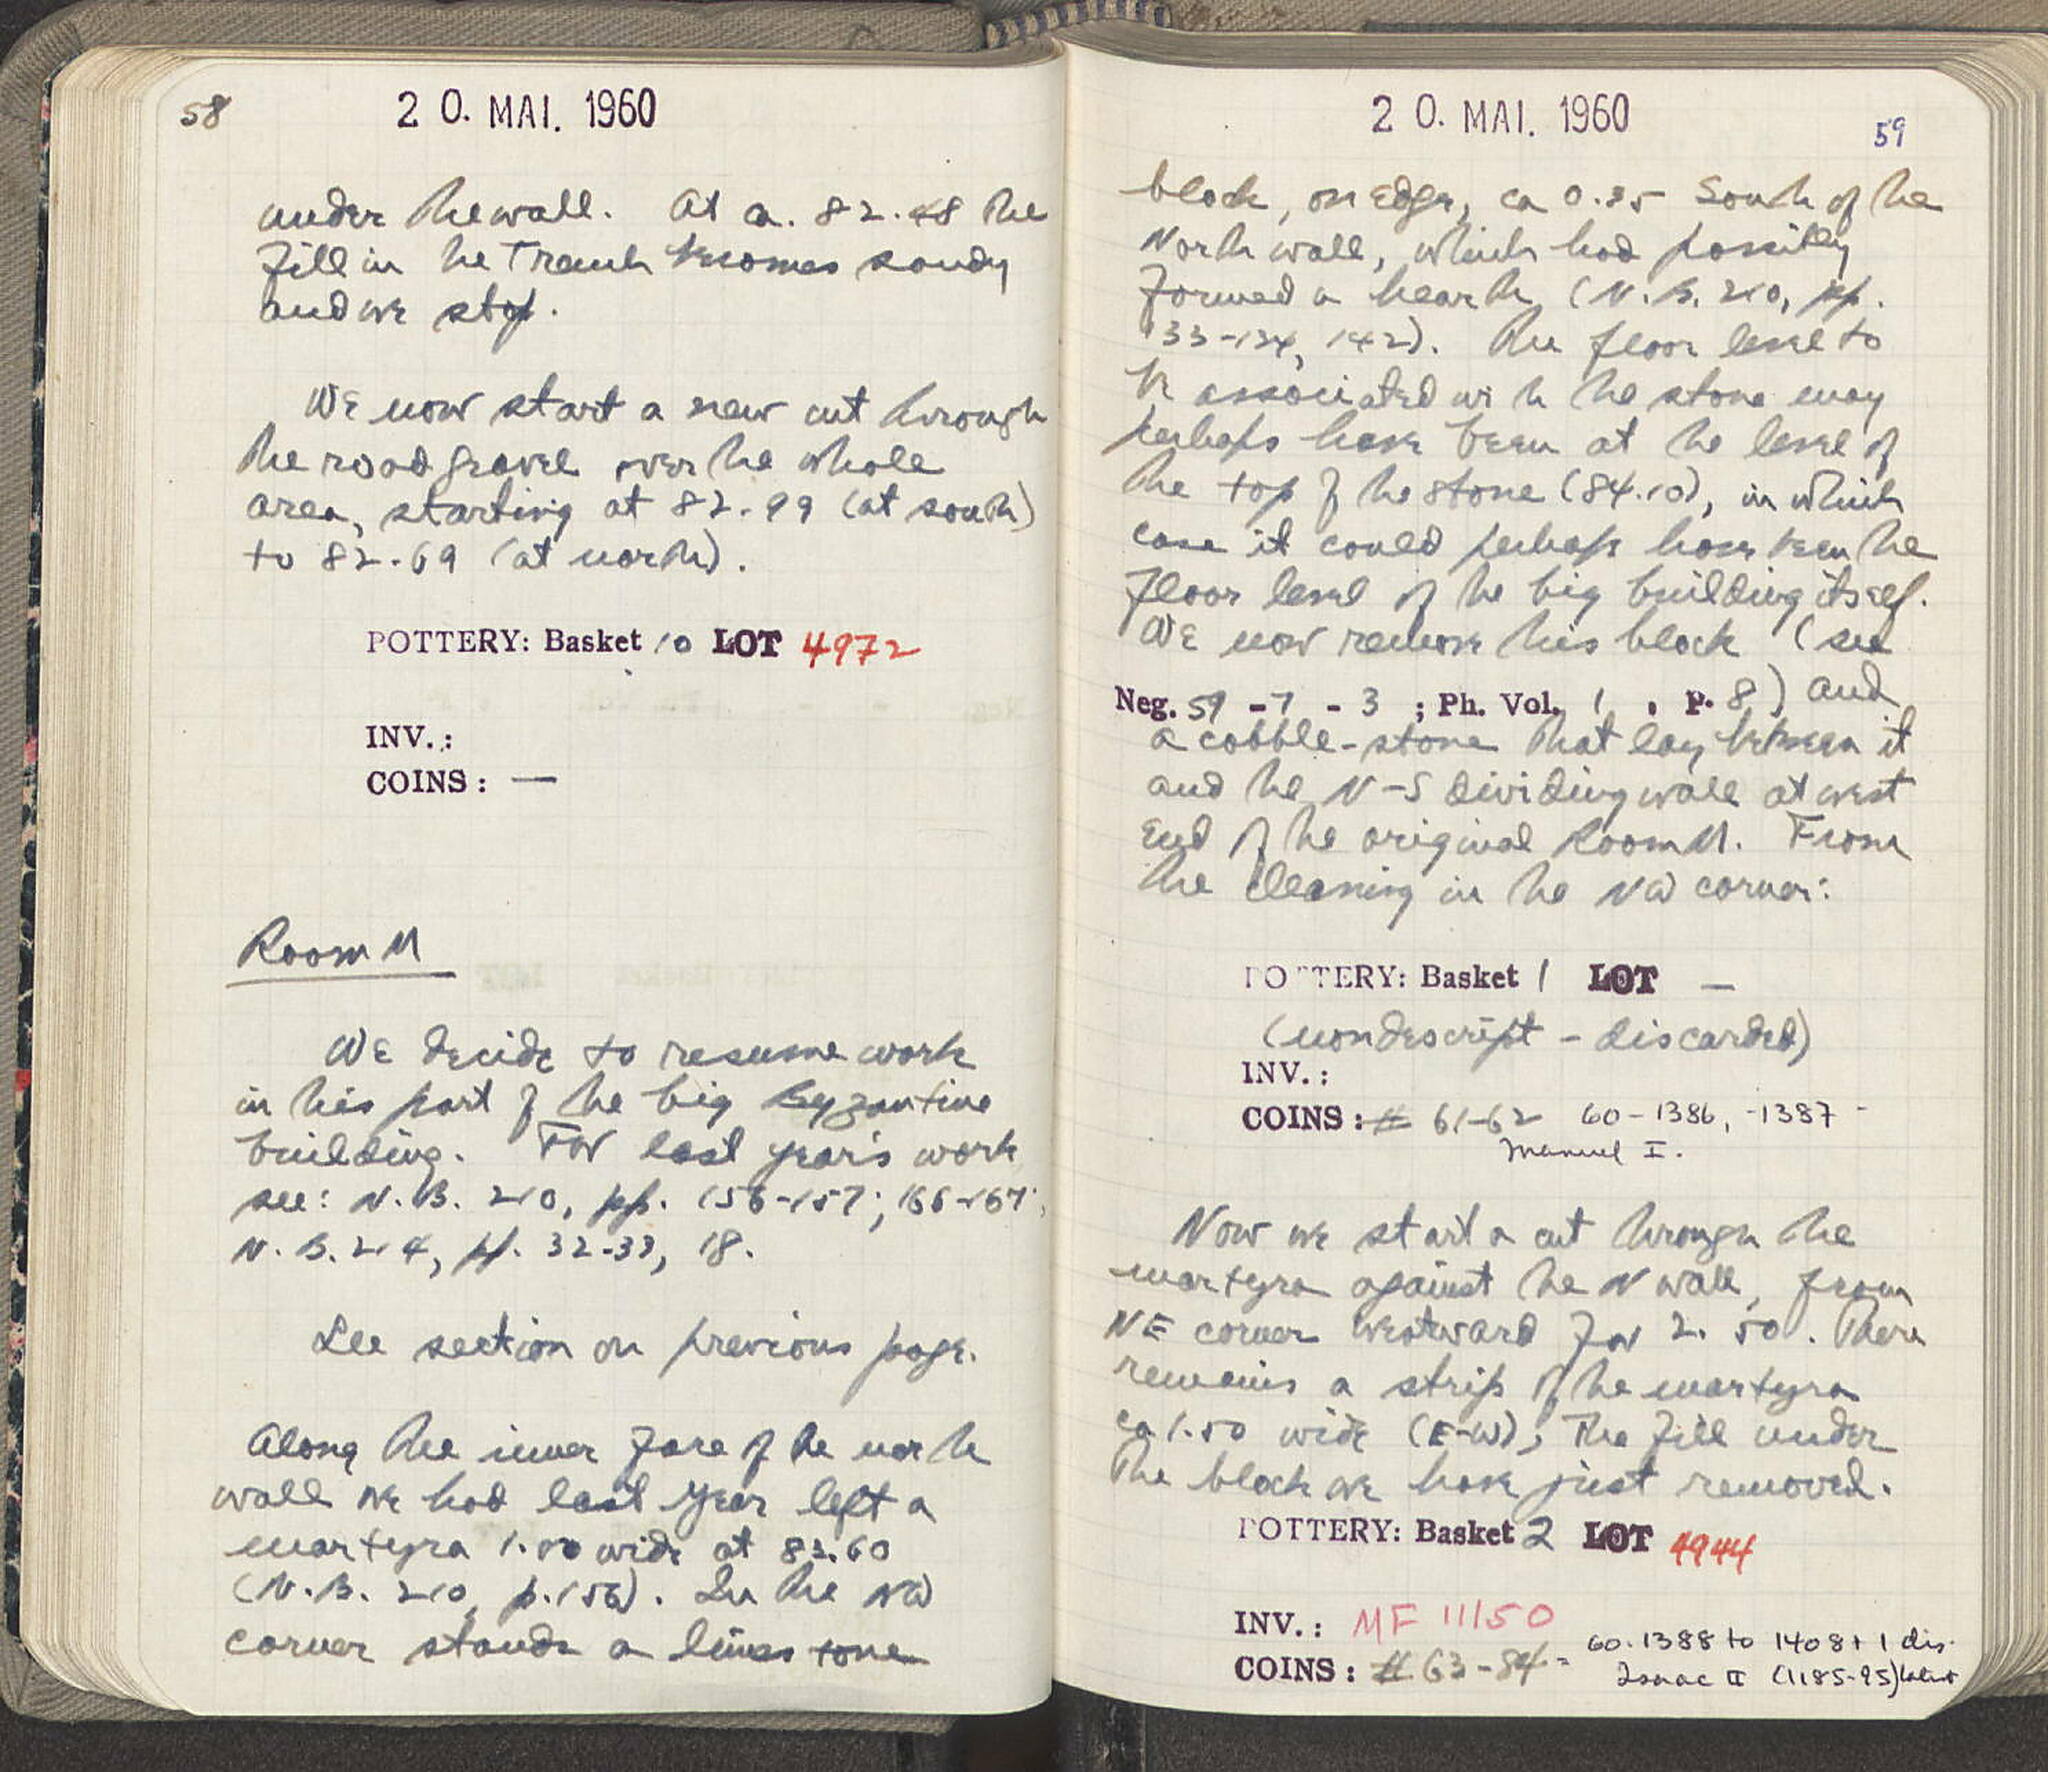 58
20. MAI. 1960
under the wall. At ca. 82.48 the
fill in the trench becomes sandy
and we stop.
We now start a new cut through
the road gravel over the whole
area, starting at 82.99 (at south)
to 82.69 (at north).
POTTERY: Basket 10 LOT 4972
INV.:
COINS: —
Room M
We decide to resume work
in this part of the big Byzantine
building. For last year's work
see: N.B. 210, pp. 156-157; 166-167;
N.B. 214, pp. 32-33, 18.
See section on previous page.
Along the inner face of the north
wall we had last year left a
martyra 1.00 wide at 83.60
(N.B. 210, p. 156). In the NW
corner stands a limestone
20. MAI. 1960
59
block, on edge, ca 0.35 South of the
North wall, which had possibly
formed a hearth (N.B. 210, pp.
133-134, 142). The floor level to
be associated with the stone may
perhaps have been at the level of
the top of the stone (84.10), in which
case it could perhaps have been the
floor level of the big building itself.
We now remove this block (see
Neg. 59 - 7 - 3 ; Ph. Vol. 1 , p. 8) and
a cobble-stone that lay between it
and the N-S dividing wall at west
end of the original Room M. From
the cleaning in the NW corner:
POTTERY: Basket 1 LOT —
(nondescript - discarded)
INV.:
COINS: # 61-62 60-1386, -1387
Manuel I.
Now we start a cut through the
martyra against the N wall, from
NE corner westward for 2.50. There
remains a strip of the martyra
ca 1.50 wide (E-W), the fill under
the block we have just removed.
POTTERY: Basket 2 LOT 4944
INV.: MF 11150
COINS: # 63-84 = 60.1388 to 1408 + 1 dis.
Isaac II (1185-95) latest